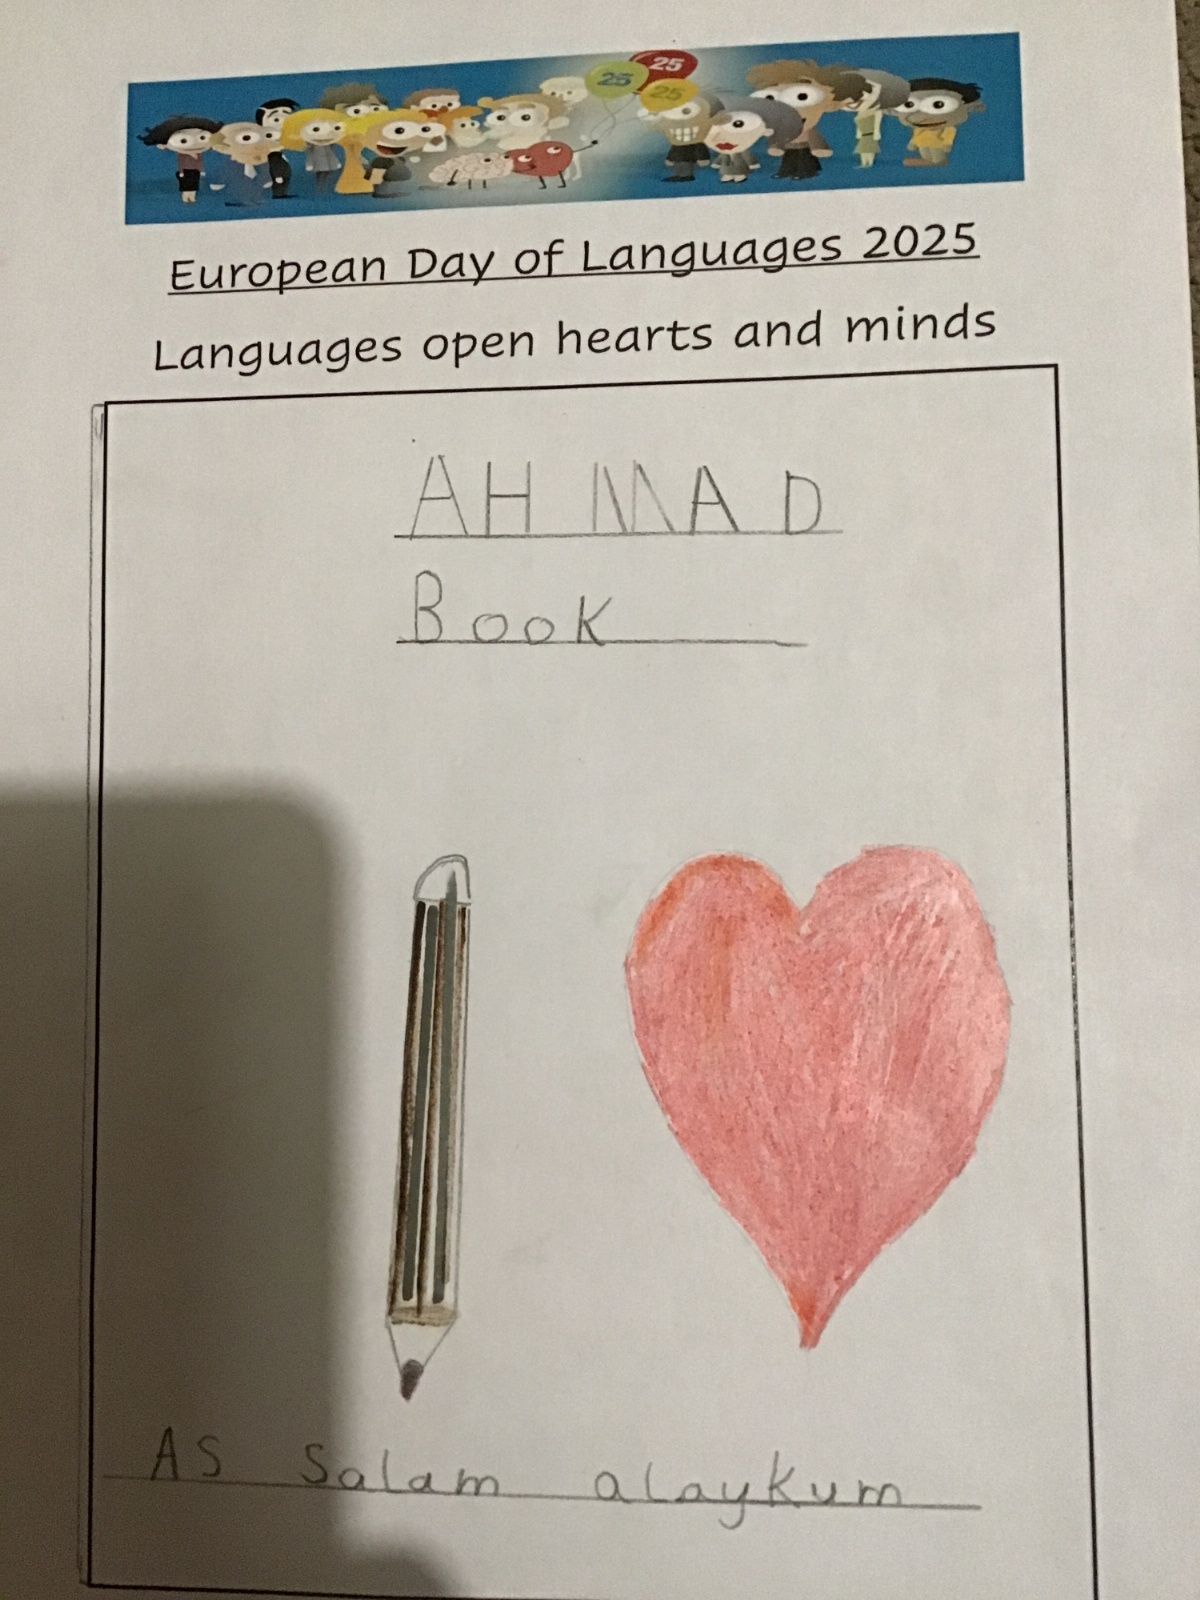 25
25
25
European Day of Languages 2025
Languages open hearts and minds
AHMAD
Book
AS Salam alaykum